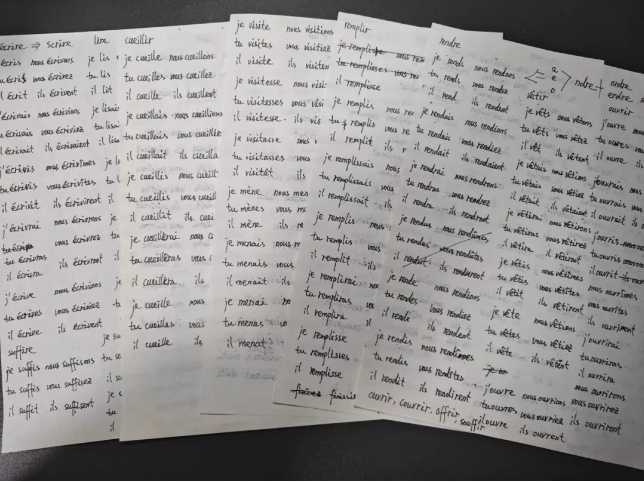 écrire ⇒ scrire lire
écris nous écrivons je lis
tu écris vous écrivez tu lis
il écrit ils écrivent il lit
j'écrivais nous écrivions je lisais
écrivais vous écriviez tu lisais
écrivait ils écrivaient
j'écrivis nous écrivîmes
tu écrivis vous écrivîtes
il écrivit ils écrivirent
j'écrirai nous écrirons
tu écriras vous écrirez
il écrira ils écriront
j'écrive nous écrivions
tu écrives vous écriviez
il écrive ils écrivent
suffire
je suffis nous suffisons
tu suffis vous suffisez
il suffit ils suffisent
cueillir
je cueille nous cueillons
tu cueilles vous cueillez
il cueille ils cueillent
je cueillais nous cueillions
tu cueillais vous cueilliez
il cueillait ils
je cueillis nous
tu cueillis vous
il cueillit ils
je cueillerai nous
tu cueilleras vous
il cueillera ils
je cueille nous
tu cueilles vous
il cueille ils
je visite nous visitions
tu visites vous visitiez
il visite ils visitent
je visitesse nous
tu visitesses vous
il visitesse ils
je visitasse
tu visitasses vous
il visitât ils
je mène nous
tu mènes vous
il mène ils
je menais nous
tu menais vous
il menait ils
je menai
tu menas
il menat
remplir
il remplisse
je remplis
tu remplis
il remplit
je remplissais
tu remplissais
il remplissait
je remplis
tu remplis
il remplit
je remplirai
tu rempliras
il remplira
je remplisse
tu remplisses
il remplisse
finissis
rendre
je rends nous rendons
tu rends vous rendez
il rend ils rendent
je rendais nous rendions
tu rendais vous rendiez
il rendait ils rendaient
je rendrai nous rendrons
tu rendras vous rendrez
il rendra ils rendront
je rendus nous rendûmes
tu rendus vous rendûtes
il rendut ils rendurent
je rende nous rendions
tu rendes vous rendiez
il rende ils rendent
je rendis nous rendîmes
tu rendis vous rendîtes
il rendit ils rendirent
ouvrir, courrir, offrir, souffrir
a
e
o
ndre
vêtir
je vêts nous vêtons
tu vêts vous vêtez
il vêt ils vêtent
je vêtais nous vêtions
tu vêtais vous vêtiez
il vêtait ils vêtaient
je vêtirai nous vêtirons
tu vêtiras vous vêtirez
il vêtira ils vêtiront
je vêtis nous vêtîmes
tu vêtis vous vêtîtes
il vêtit ils vêtirent
je vête nous vêtions
tu vêtes vous vêtiez
il vête ils vêtent
j'ouvre nous ouvrions
tu ouvres vous ouvriez
il ouvre ils ouvrent
ordre
erdre
ouvrir
j'ouvre
tu ouvres
il ouvre
j'ouvrais
tu ouvrais
il ouvrait
j'ouvris
tu ouvris
il ouvrit
nous ouvrîmes
vous ouvrîtes
ils ouvrirent
j'ouvrirai
tu ouvriras
il ouvrira
nous ouvrirons
vous ouvrirez
ils ouvriront